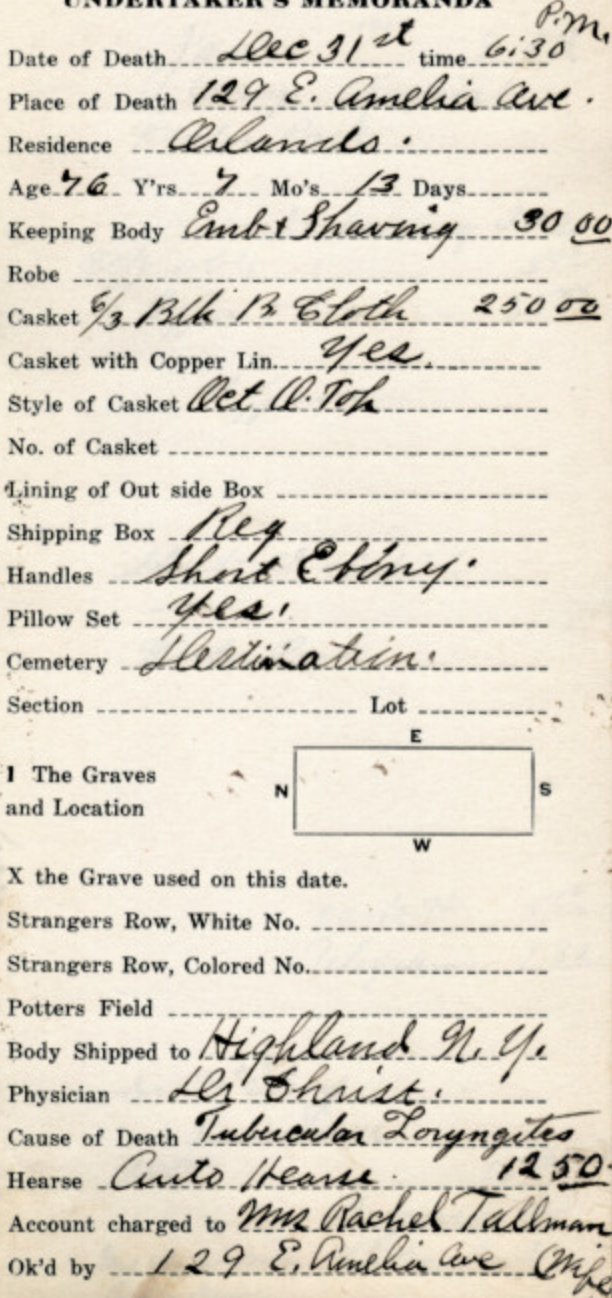 UNDERTAKER'S MEMORANDA
Date of Death Dec 31st time 6:30 P.M.
Place of Death 129 E. Amelia Ave.
Residence Orlando.
Age 76 Y'rs 7 Mo's 13 Days
Keeping Body Emb & Shaving 30 00
Robe
Casket 6/3 Blk B Cloth 250 00
Casket with Copper Lin. Yes.
Style of Casket Oct O. Top
No. of Casket
Lining of Out side Box
Shipping Box Reg
Handles Short Ebony.
Pillow Set Yes.
Cemetery Destination.
Section Lot
E
1 The Graves
and Location
N S
W
X the Grave used on this date.
Strangers Row, White No.
Strangers Row, Colored No.
Potters Field
Body Shipped to Highland N. Y.
Physician Dr Christ.
Cause of Death Tubercular Loryngites
Hearse Auto Hearse. 12 50
Account charged to Mrs Rachel Tallman
Ok'd by 129 E. Amelia Ave (Wife